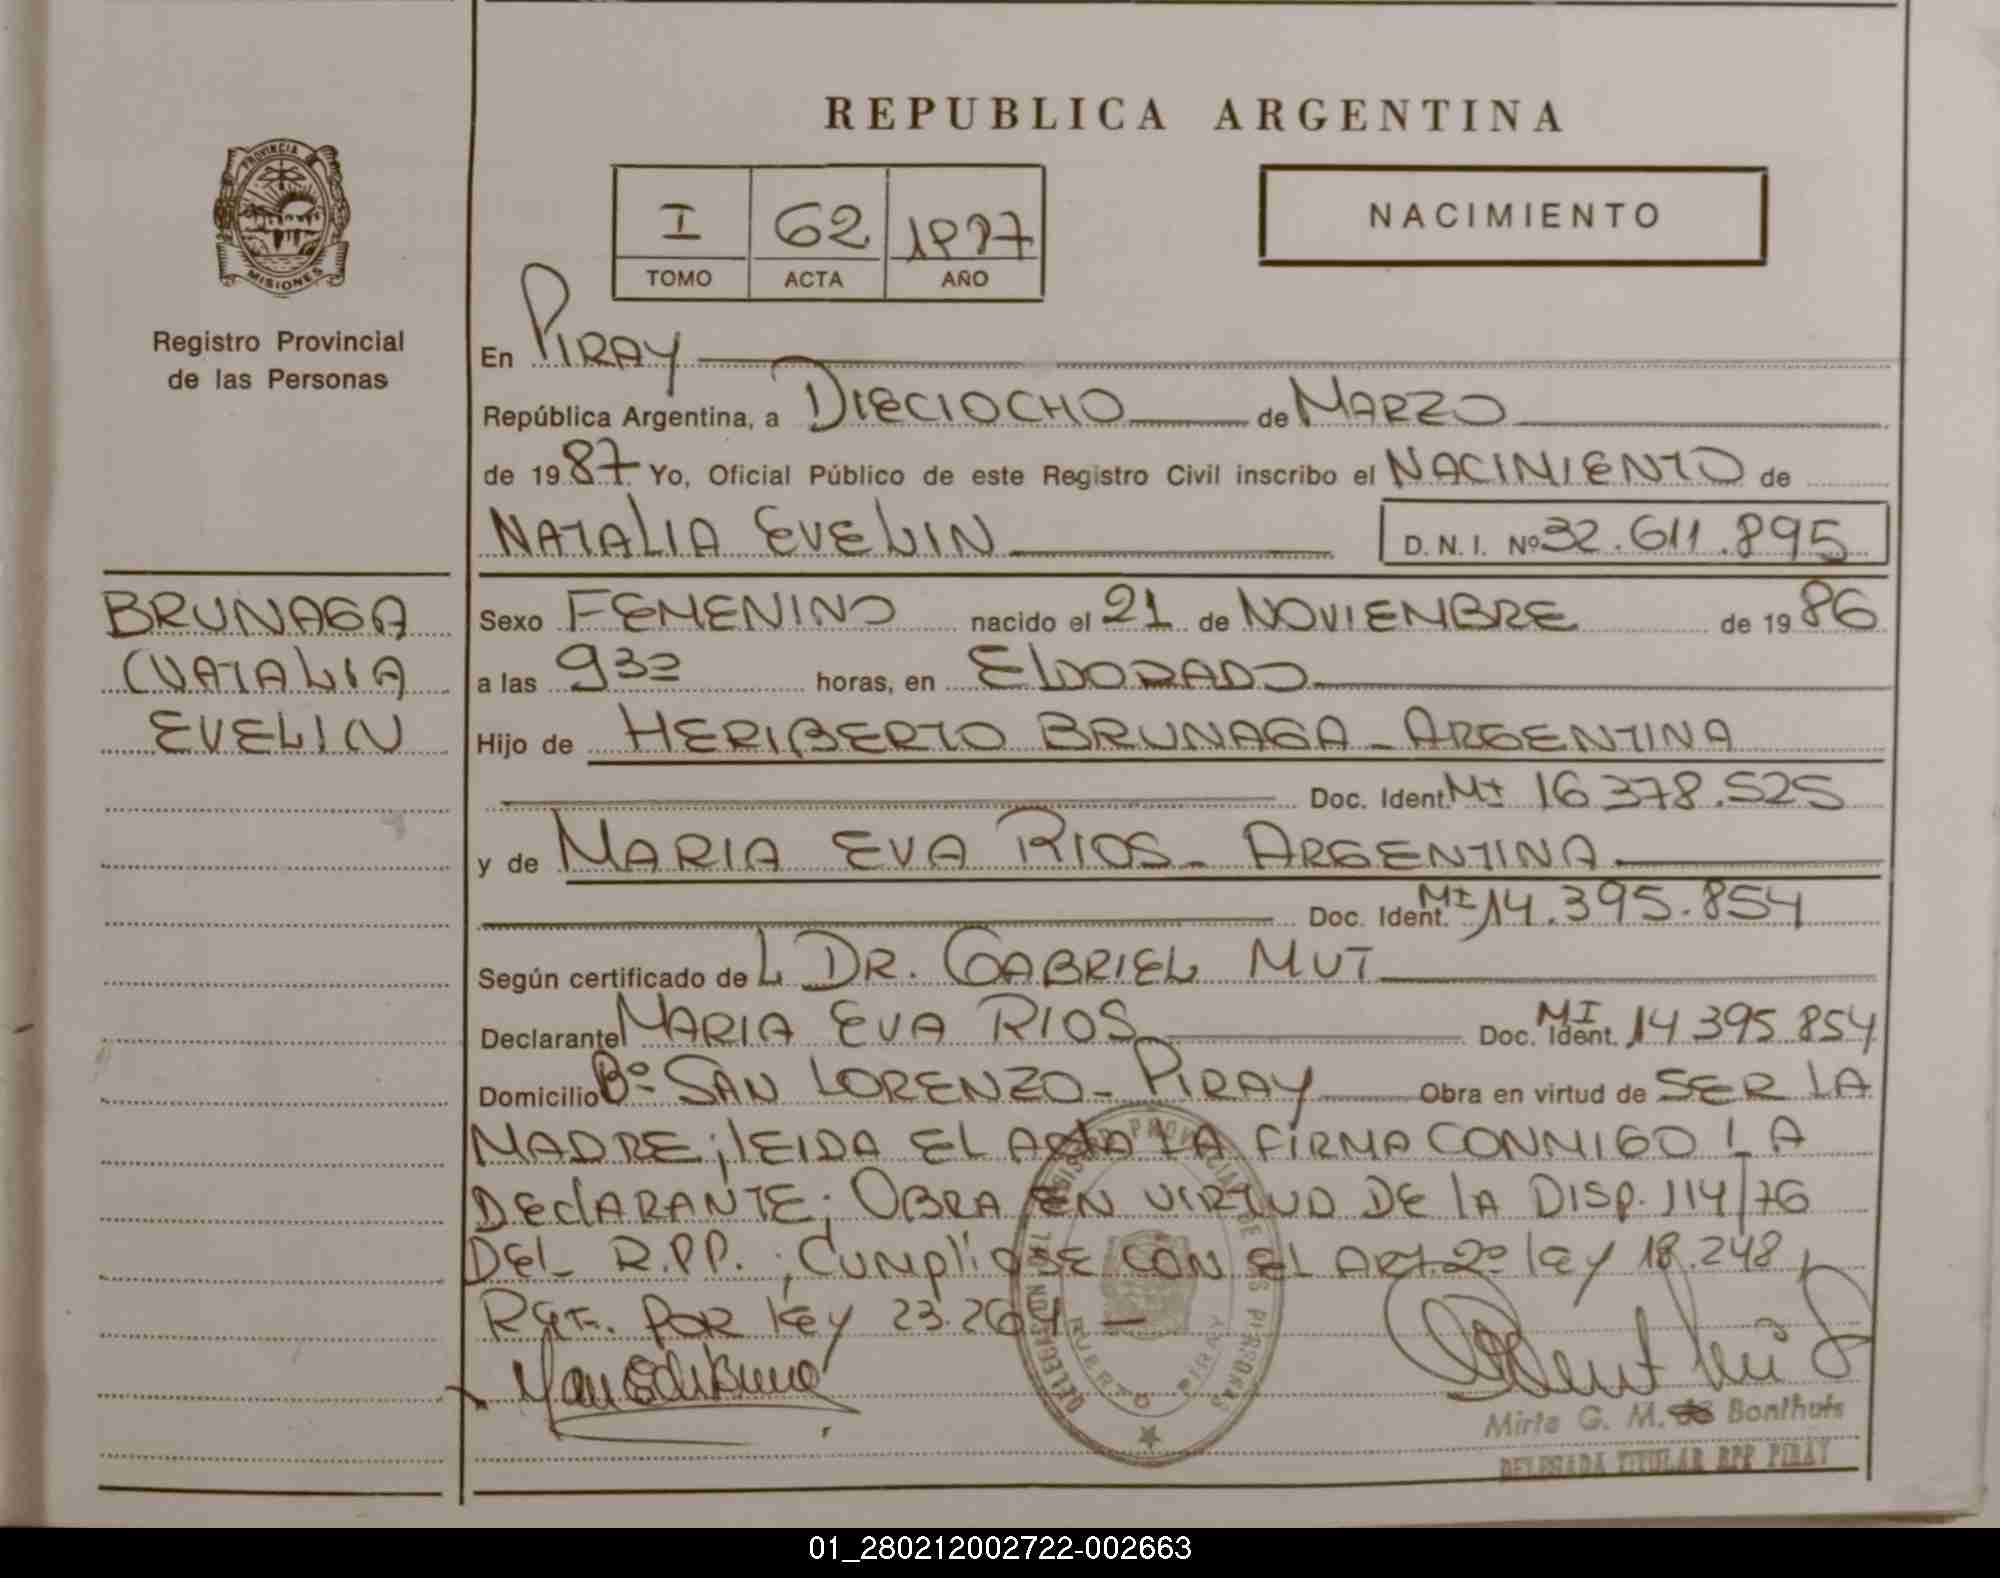 REPUBLICA ARGENTINA
PROVINCIA
MISIONES
Registro Provincial
de las Personas
I 62 1987
TOMO ACTA AÑO
NACIMIENTO
En PIRAY
República Argentina, a DIECIOCHO de MARZO
de 1987 Yo, Oficial Público de este Registro Civil inscribo el NACIMIENTO de
NATALIA EVELIN D.N.I. Nº 32.611.895
BRUNAGA
NATALIA
EVELIN
Sexo FEMENINO nacido el 21 de NOVIEMBRE de 1986
a las 930 horas, en ELDORADO
Hijo de HERIBERTO BRUNAGA - ARGENTINA
Doc. Ident. MI 16 378.525
y de MARIA EVA RIOS - ARGENTINA
Doc. Ident. MI 14.395.854
Según certificado de L DR. GABRIEL MUT
Declarante MARIA EVA RIOS Doc. Ident. MI 14 395 854
Domicilio Bº SAN LORENZO - PIRAY Obra en virtud de SER LA
MADRE; LEIDA EL ACTA LA FIRMA CONMIGO LA
DEClARANTE; OBRA EN VIRTUD DE lA DISP. 114/76
DEL R.P.P. ; CUMPliOSE CON EL ART. 2º lEY 18.248,
POR lEY 23.264 -
REGISTRO PROVINCIAL DE LAS PERSONAS
DELEGACION
PUERTO PIRAY
Mirta G. M. de Bonthuis
DELEGADA TITULAR RPP PIRAY
01_280212002722-002663